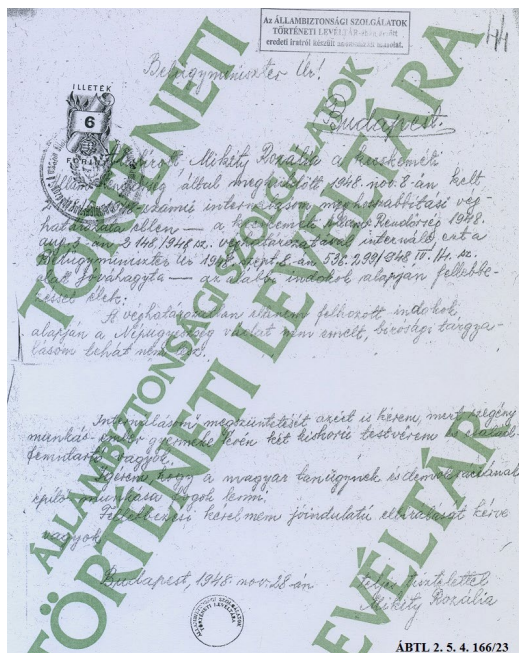 Az ÁLLAMBIZTONSÁGI SZOLGÁLATOK
TÖRTÉNETI LEVÉLTÁR
eredeti iratról készült másolat.
Belügyminiszter Úr!
Budapest
ILLETÉK
6
FORINT
Alulírott Mikély Rozália a kecskeméti
Államrendőrség által meghozott 1948. nov. 8-án kelt
számú internálásom meghosszabbítási vég
határozata ellen — a kecskeméti Állam Rendőrség 1948.
aug. 3-án 2148/1948 sz. véghatározatával internált ezt a
Belügyminiszter Úr 1948. szept. 8-án 536.299/1948 IV. 14. sz.
alatt jóváhagyta — az alábbi indokok alapján fellebbe-
zéssel élek:
A véghatározatban ellenem felhozott indokok
alapján a Népügyészség vádat nem emelt, bírósági tárgya-
lásom tehát nem
Internálásom megszüntetését azért is kérem, mert szegény
munkás ember gyermeke lévén két kiskorú testvérem és család
fenntartó vagyok.
Ígérem, hogy a magyar tanügynek és demokráciának
építő munkása fogok lenni.
Fellebbezési kérelmem jóindulatú elbírálását kérve
vagyok
Budapest, 1948. nov. 28-án
teljes tisztelettel
Mikély Rozália
ÁLLAMBIZTONSÁGI SZOLGÁLATOK
TÖRTÉNETI LEVÉLTÁRA
ÁBTL 2. 5. 4. 166/23